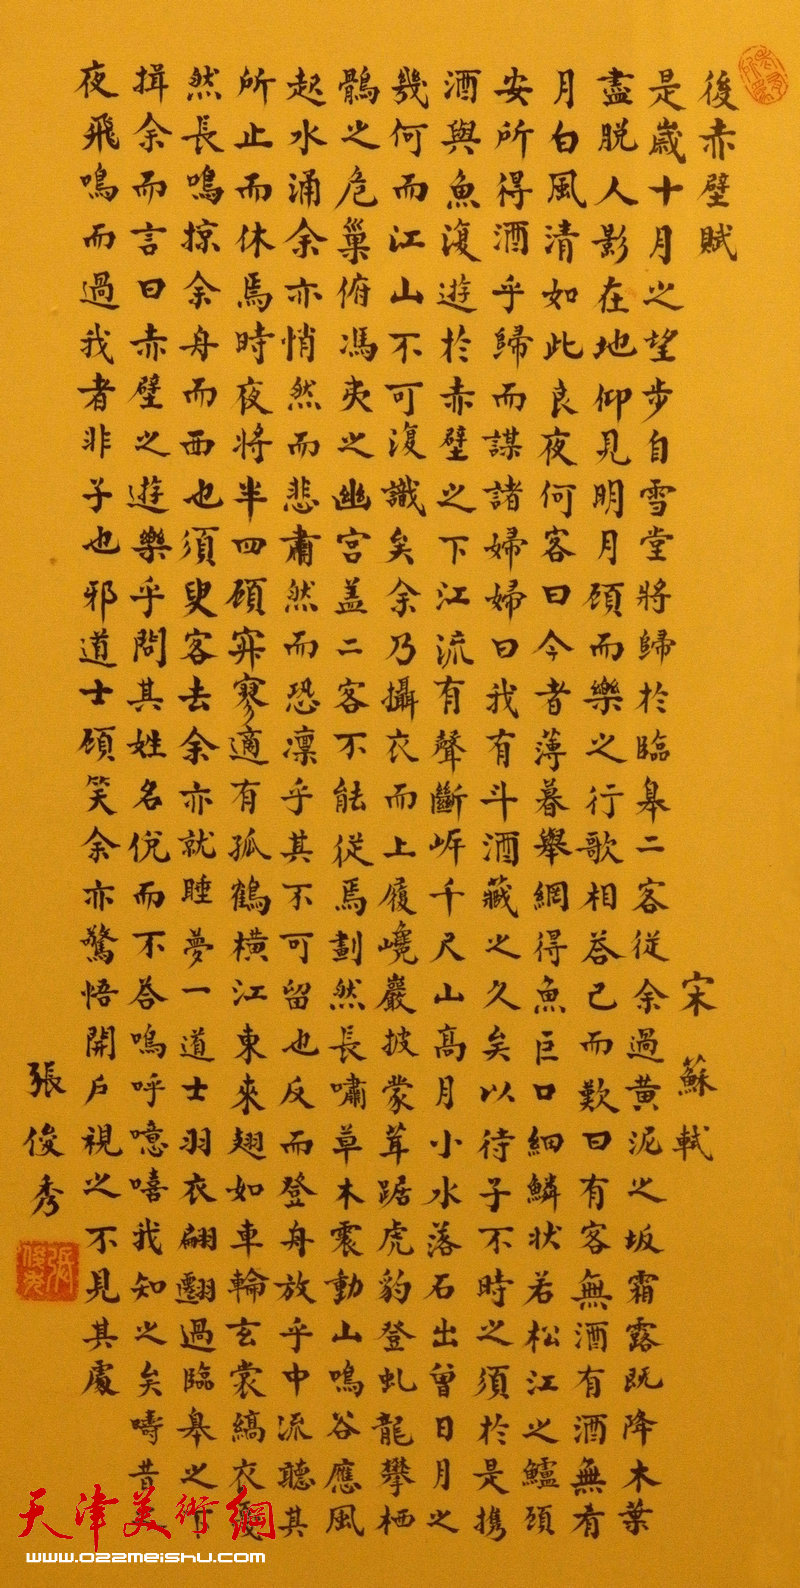 後赤壁賦
宋 蘇軾
是歲十月之望步自雪堂將歸於臨臯二客從余過黃泥之坂霜露既降木葉
盡脱人影在地仰見明月顧而樂之行歌相荅已而歎曰有客無酒有酒無肴
月白風清如此良夜何客曰今者薄暮舉網得魚巨口細鱗狀若松江之鱸顧
安所得酒乎歸而謀諸婦婦曰我有斗酒藏之久矣以待子不時之須於是携
酒與魚復遊於赤壁之下江流有聲斷岸千尺山高月小水落石出曾日月之
幾何而江山不可復識矣余乃攝衣而上履巉巖披蒙茸踞虎豹登虬龍攀栖
鶻之危巢俯馮夷之幽宮盖二客不能從焉劃然長嘯草木震動山鳴谷應風
起水涌余亦悄然而悲肅然而恐凛乎其不可留也反而登舟放乎中流聽其
所止而休焉時夜將半四顧寂寥適有孤鶴橫江東來翅如車輪玄裳縞衣戛
然長鳴掠余舟而西也須臾客去余亦就睡夢一道士羽衣翩過臨臯之下
揖余而言曰赤壁之遊樂乎問其姓名俛而不荅嗚呼噫嘻我知之矣疇昔之
夜飛鳴而過我者非子也邪道士顧笑余亦驚悟開戶視之不見其處
張俊秀
天津美術網
www.022meishu.com